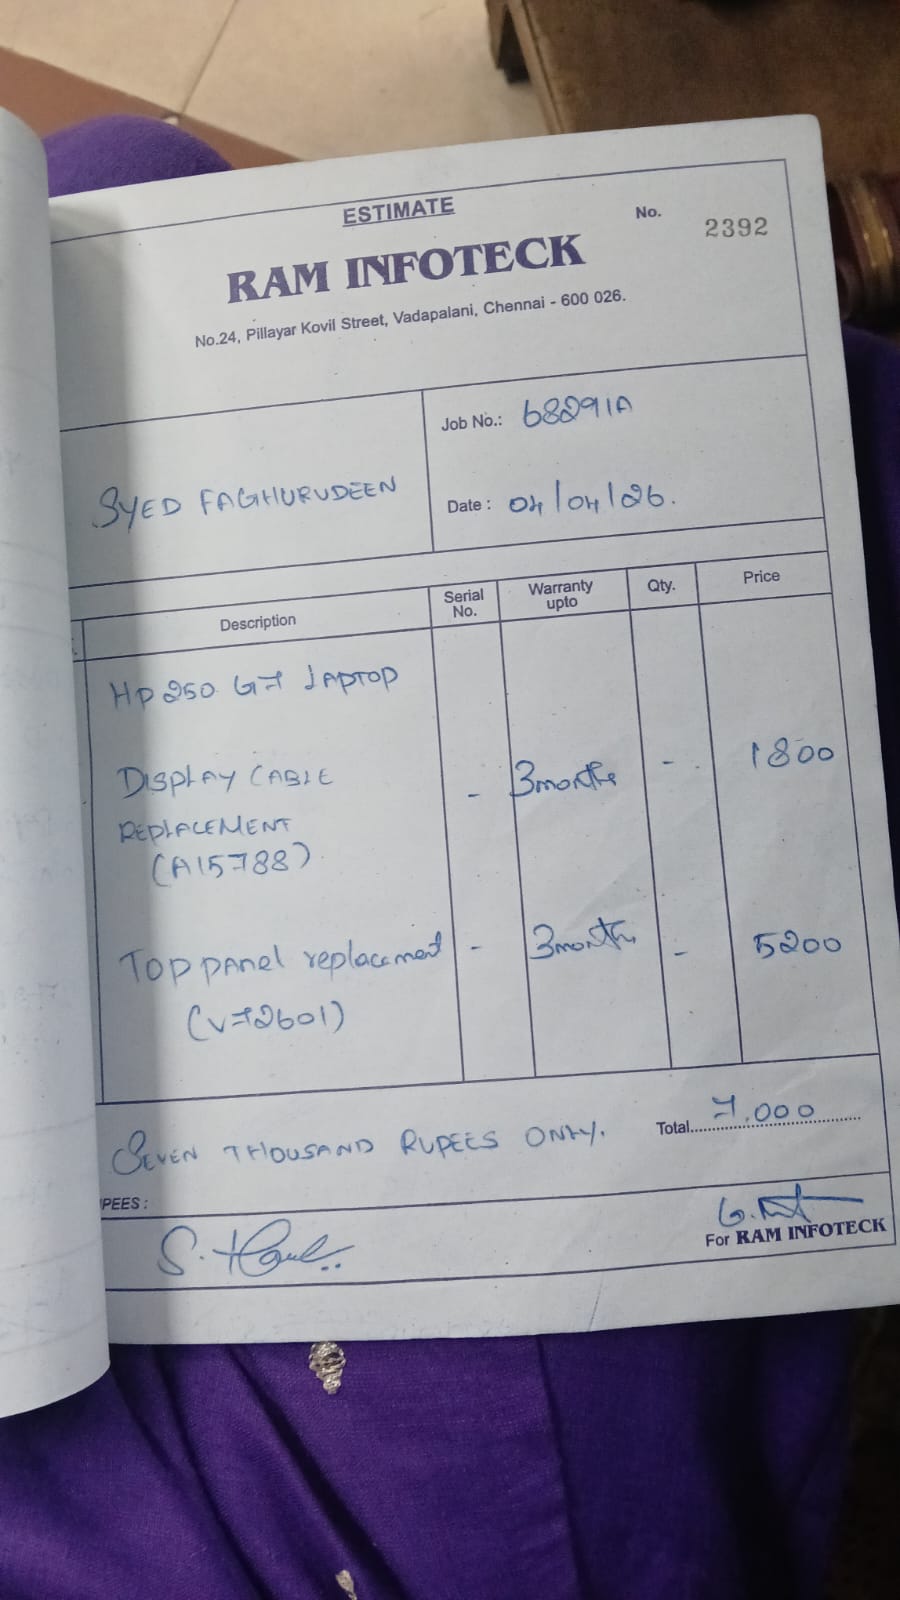 ESTIMATE
No. 2392
RAM INFOTECK
No.24, Pillayar Kovil Street, Vadapalani, Chennai - 600 026.
SYED FAGHURUDEEN
Job No.: 68291A
Date : 04/04/26.
Description Serial No. Warranty upto Qty. Price
HP 250 G7 LAPTOP
DISPLAY CABLE - 3months - 1800
REPLACEMENT
(A15788)
TOP PANEL replacement - 3months - 5200
(V72601)
SEVEN THOUSAND RUPEES ONLY. Total 7.000
PEES :
For RAM INFOTECK